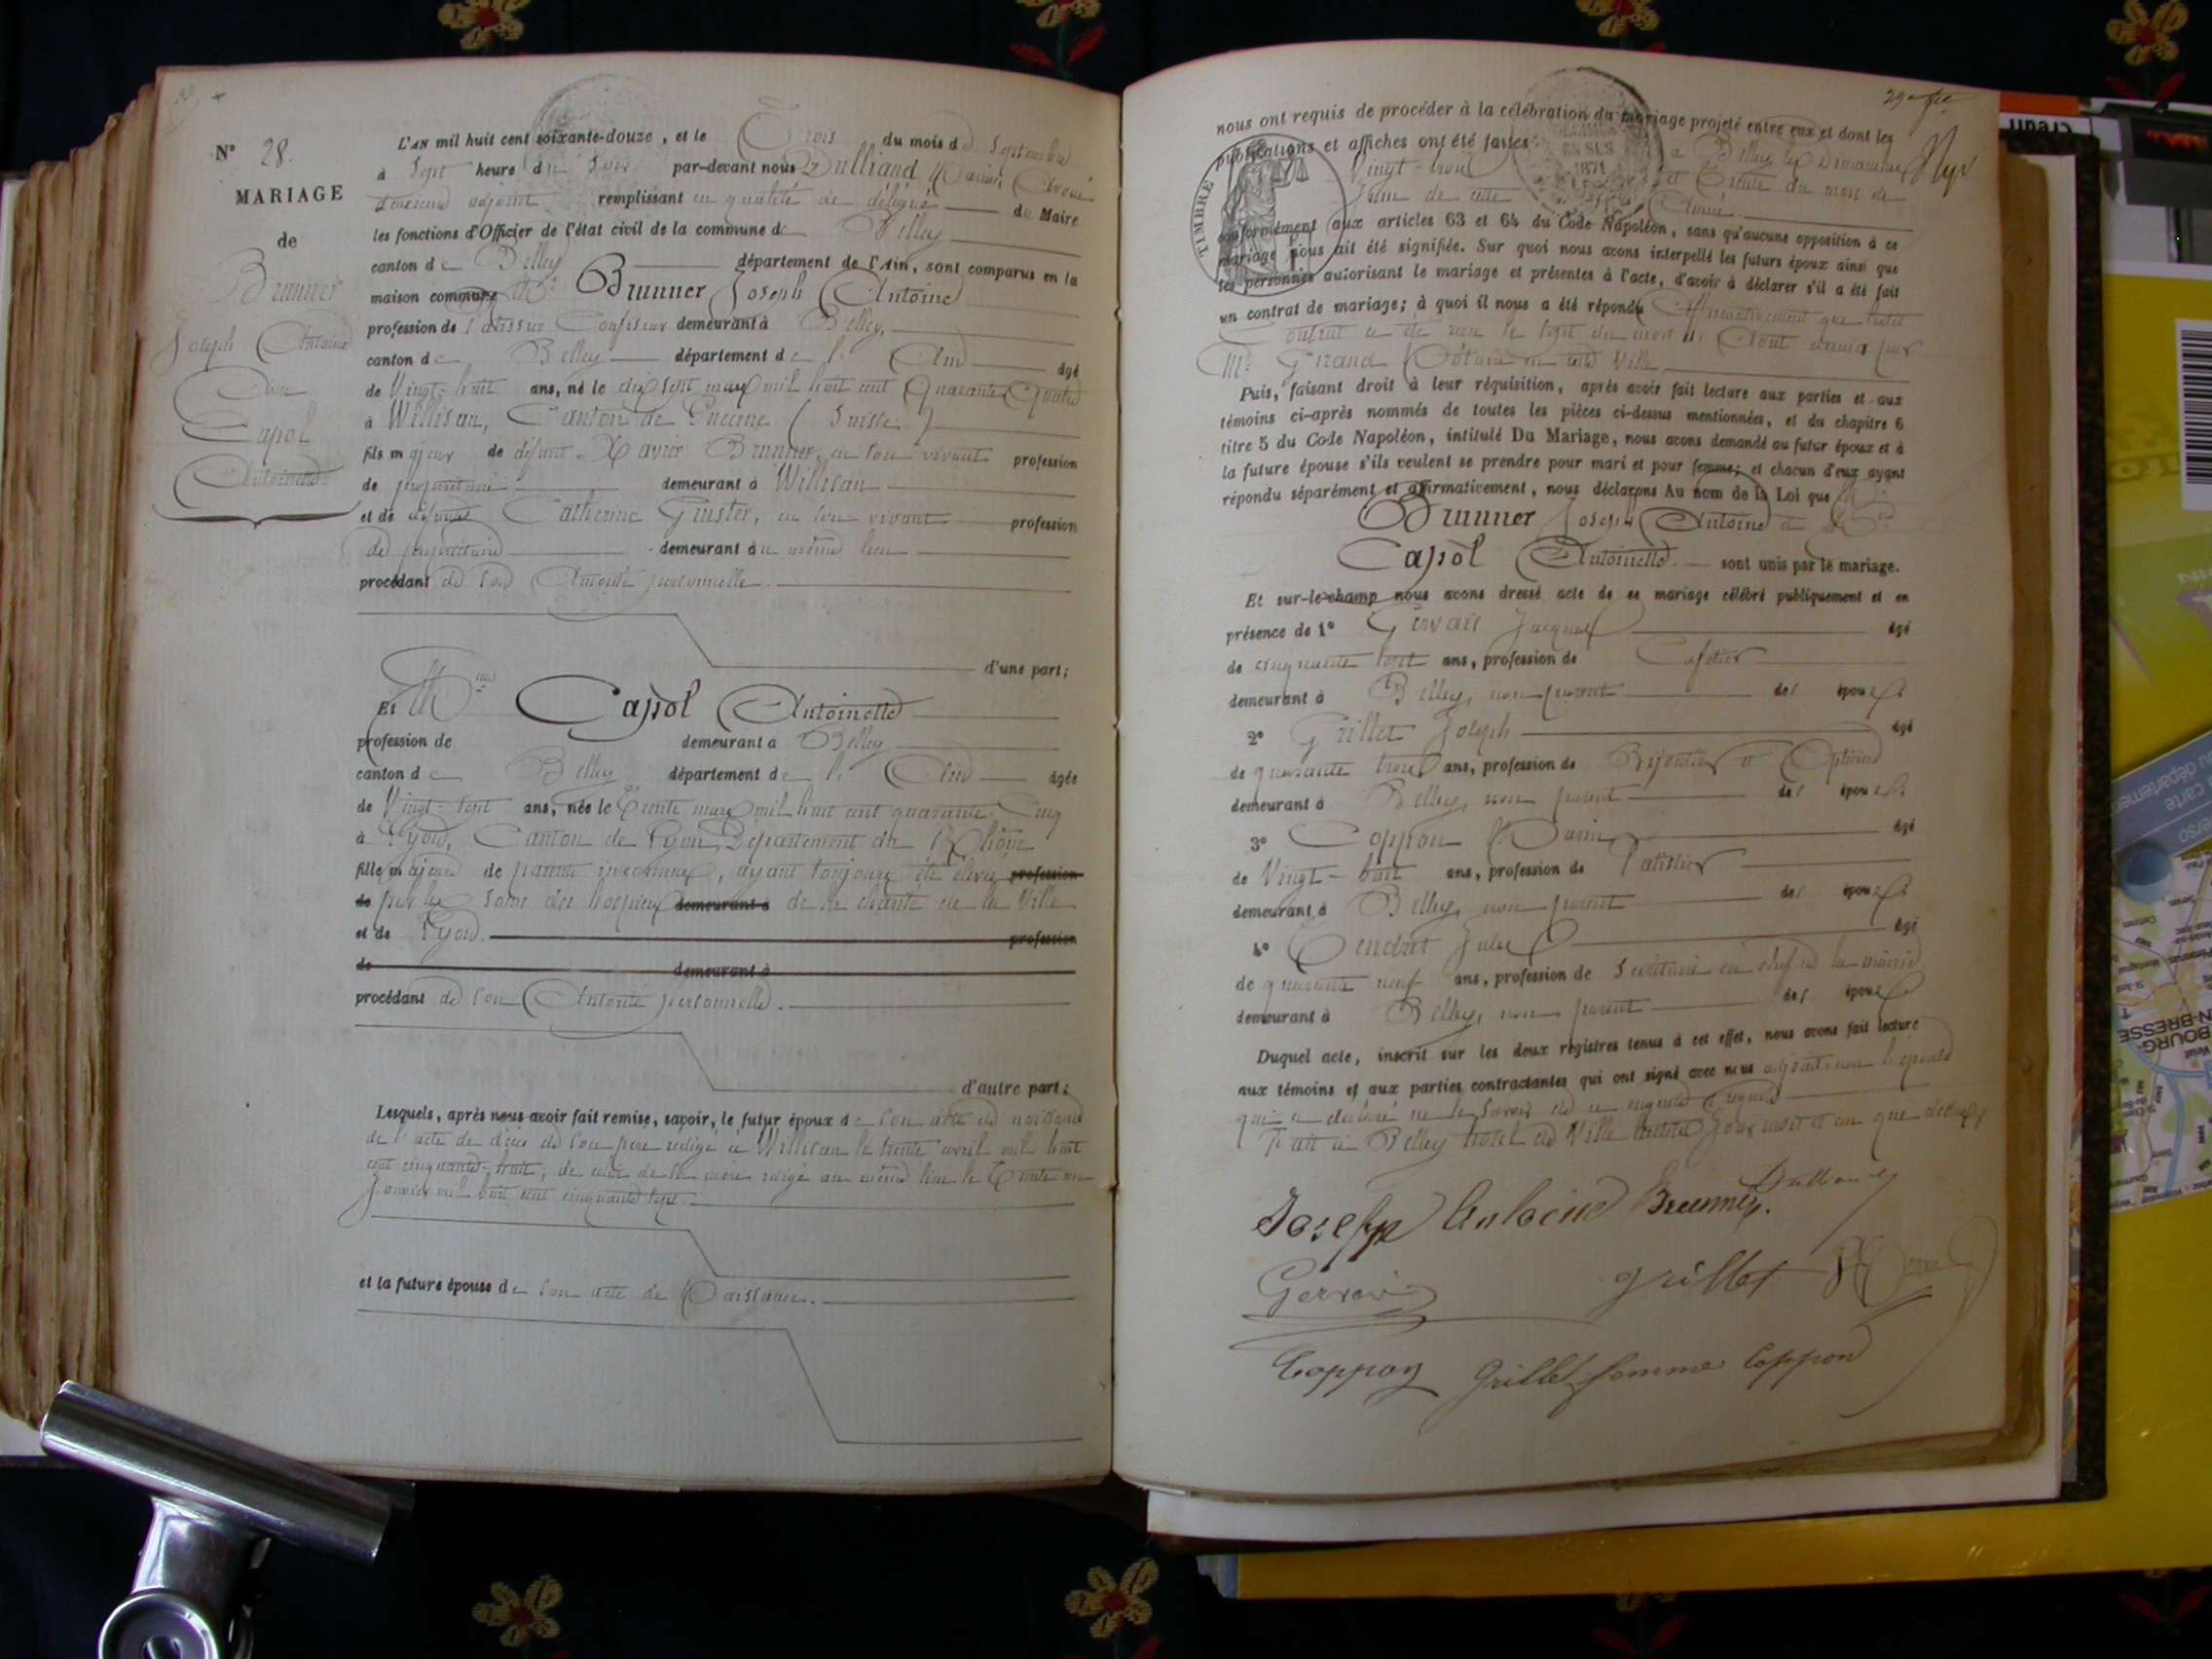 N° 28.
MARIAGE
de
Brunner
Joseph Antoine
Capol
Antoinette
L'AN mil huit cent soixante-douze, et le Trois du mois de Septembre
à Sept heure du Soir par-devant nous
adjoint remplissant en qualité de délégué du Maire
les fonctions d'Officier de l'état civil de la commune de Belley
canton de Belley département de l'Ain, sont comparus en la
maison commune Mr Brunner Joseph Antoine
profession de Patissier Confiseur demeurant à Belley,
canton de Belley département de l'Ain âgé
de Vingt-huit ans, né le dix sept mars mil huit cent Quarante Quatre
à Willisau, Canton de Lucerne (Suisse)
fils majeur de défunt Xavier Brunner, en son vivant profession
de propriétaire demeurant à Willisau
et de défunte Catherine en son vivant profession
de propriétaire demeurant au même lieu
procédant de son Autorité personnelle.
d'une part;
Et Mlle Capol Antoinette
profession de demeurant à Belley
canton de Belley département de l'Ain âgée
de Vingt-sept ans, née le Trente mars mil huit cent quarante-Cinq
à Lyon, Canton de Lyon, Département du Rhône
fille majeure de parents inconnus, ayant toujours été élevée profession
de par les soins des hospices demeurant à de la charité de la Ville
et de Lyon. profession
de demeurant à
procédant de son Autorité personnelle.
d'autre part;
Lesquels, après nous avoir fait remise, savoir, le futur époux de son acte de naissance
de l'acte de décès de son père rédigé à Willisau le trente avril mil huit
cent cinquante-huit, de celui de sa mère rédigé au même lieu le Trente un
Janvier mil huit cent cinquante sept.
et la future épouse de son acte de Naissance.
nous ont requis de procéder à la célébration du mariage projeté entre eux et dont les
publications et affiches ont été faites à Belley les Dimanches
Vingt-trois et Trente du mois de
Juin de cette Année
conformément aux articles 63 et 64 du Code Napoléon, sans qu'aucune opposition à ce
mariage nous ait été signifiée. Sur quoi nous avons interpellé les futurs époux ainsi que
les personnes autorisant le mariage et présentes à l'acte, d'avoir à déclarer s'il a été fait
un contrat de mariage; à quoi il nous a été répondu Affirmativement que ledit
contrat a été reçu le sept du mois d'Aout dernier par
Me Girand Notaire en cette Ville
Puis, faisant droit à leur réquisition, après avoir fait lecture aux parties et aux
témoins ci-après nommés de toutes les pièces ci-dessus mentionnées, et du chapitre 6
titre 5 du Code Napoléon, intitulé Du Mariage, nous avons demandé au futur époux et à
la future épouse s'ils veulent se prendre pour mari et pour femme; et chacun d'eux ayant
répondu séparément et affirmativement, nous déclarons Au nom de la Loi que Mr
Brunner Joseph Antoine et Mlle
Capol Antoinette. sont unis par le mariage.
Et sur-le-champ nous avons dressé acte de ce mariage célébré publiquement et en
présence de 1° Gervais Jacques âgé
de cinquante sept ans, profession de Cafetier
demeurant à Belley, non parent des époux
2° Grillet Joseph âgé
de quarante trois ans, profession de Bijoutier et Opticien
demeurant à Belley, non parent des époux
3° Coppon Marin âgé
de Vingt-huit ans, profession de Patissier
demeurant à Belley, non parent des époux
4° Jules âgé
de quarante neuf ans, profession de Secrétaire en chef de la mairie
demeurant à Belley, non parent des époux
Duquel acte, inscrit sur les deux registres tenus à cet effet, nous avons fait lecture
aux témoins et aux parties contractantes qui ont signé avec nous adjoint, non l'épouse
qui a déclaré ne le savoir de ce enquise et requise
Fait à Belley hotel de Ville lesdits Jour mois et an que dessus
Joseph Antoine Brunner.
Gervais
Grillet
Coppon
Grillet femme Coppon
TIMBRE
1871
BOURG-
N-BRESSE